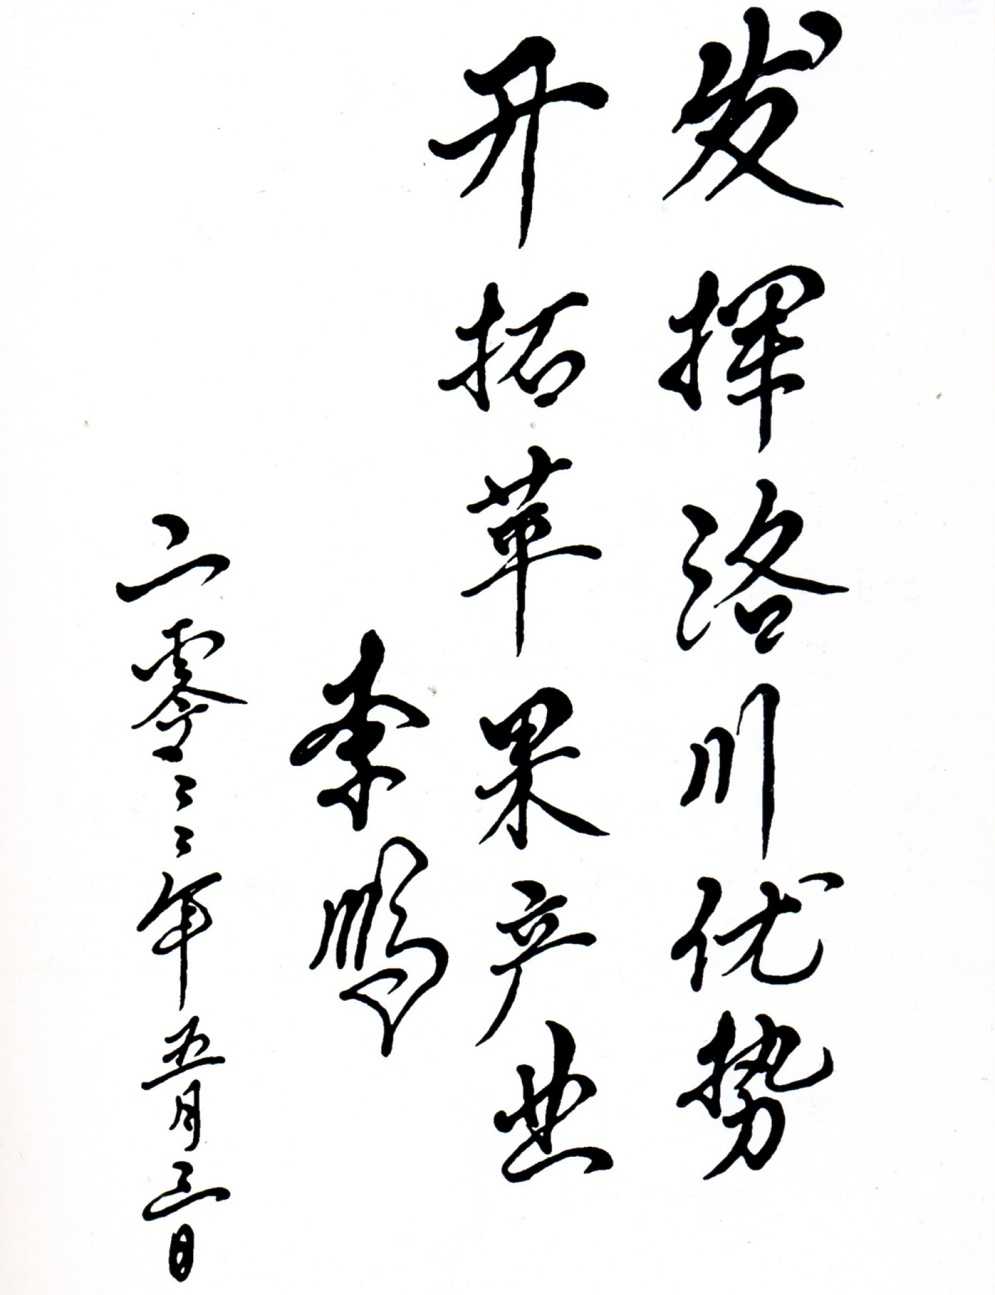 发挥洛川优势
开拓苹果产业
李鹏
二零〻二年五月三日